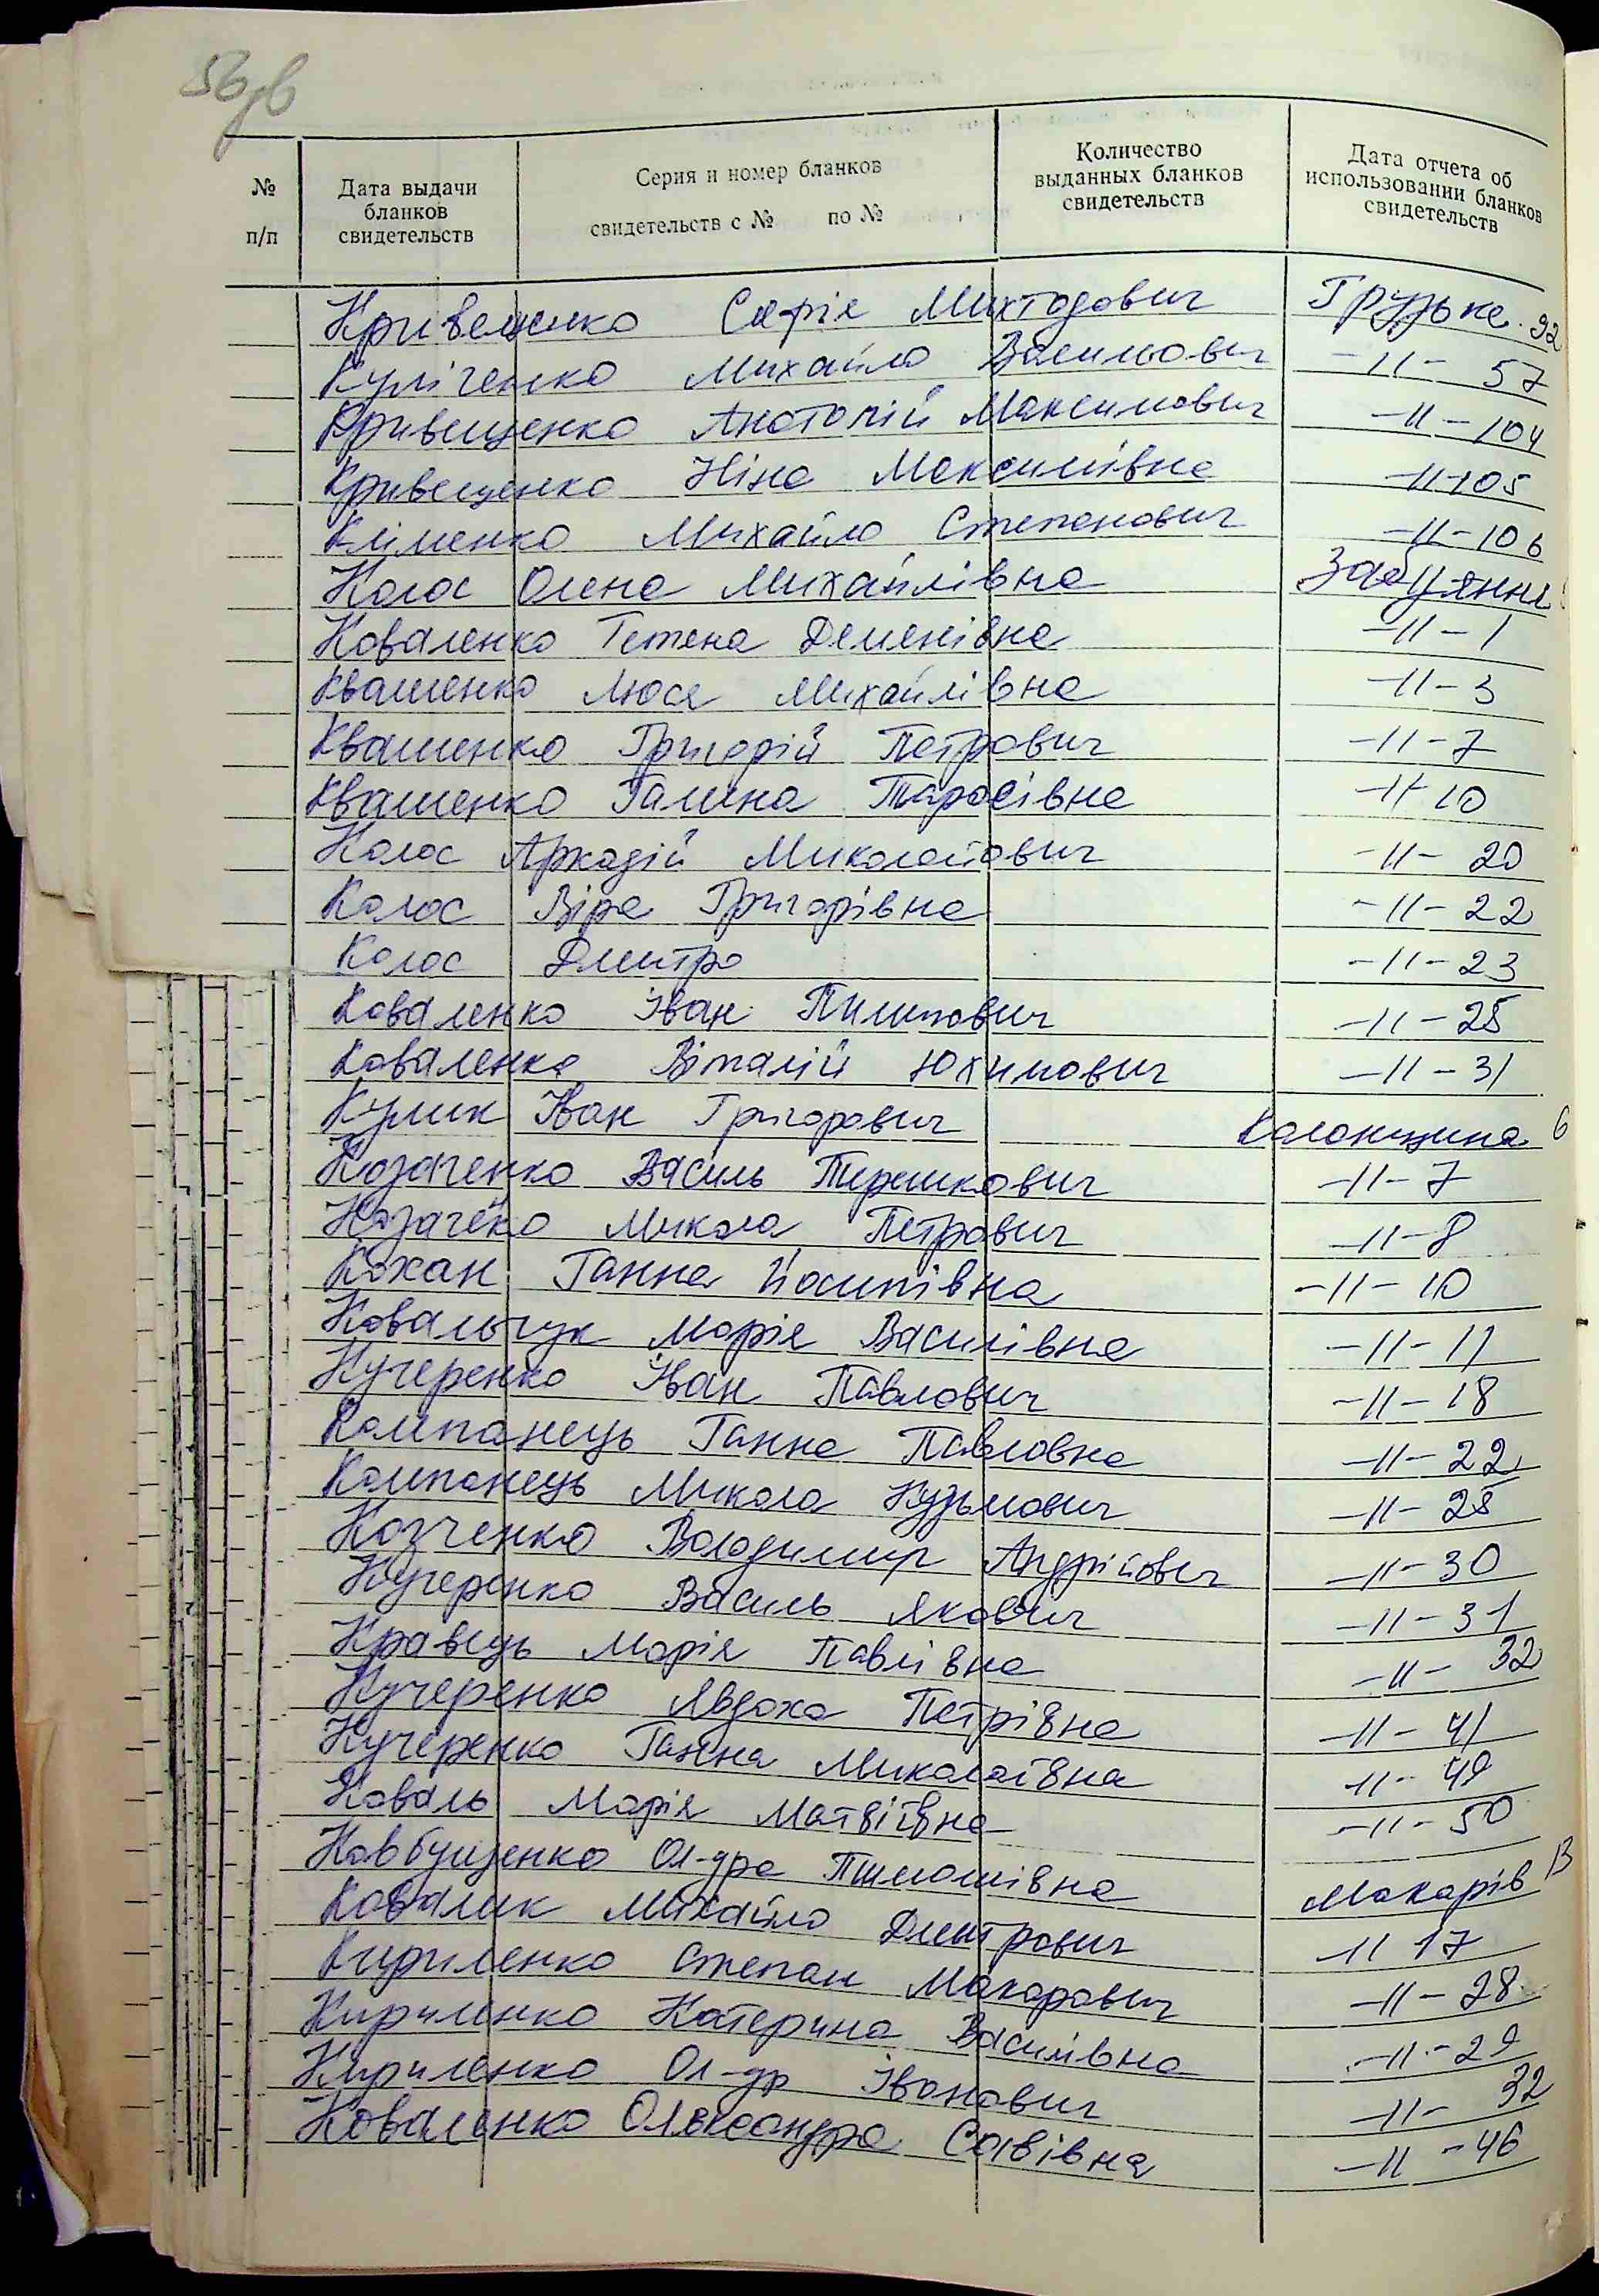 56зв
№ п/п
Дата выдачи бланков свидетельств
Серия и номер бланков свидетельств с № по №
Количество выданных бланков свидетельств
Дата отчета об использовании бланков свидетельств
Кривещенко Софія Миктодович Грузьке 92
Куліченко Михайло Васильович -11- 57
Кривещенко Анатолій Максимович -11- 104
Кривещенко Ніна Максимівна -11- 105
Кліменко Михайло Степанович -11- 106
Колос Олена Михайлівна Забуяння
Коваленко Тетяна Деменівна -11- 1
Квашенко Люся Михайлівна -11- 3
Квашенко Григорій Петрович -11- 7
Квашенко Галина Тарасівна -11- 10
Колос Аркадій Миколайович -11- 20
Колос Віра Григорівна -11- 22
Колос Дмитро -11- 23
Коваленко Іван Пилипович -11- 25
Коваленко Віталій Юхимович -11- 31
Кулик Іван Григорович Колонщина 6
Козаченко Василь Терешкович -11- 7
Козаченко Микола Петрович -11- 8
Кохан Ганна Йосипівна -11- 10
Ковальчук Марія Василівна -11- 11
Кучеренко Іван Павлович -11- 18
Компанець Ганна Павловна -11- 22
Компанець Микола Кузьмович -11- 28
Козченко Володимир Андрійович -11- 30
Кучеренко Василь Якович -11- 31
Кравець Марія Павлівна -11- 32
Кучеренко Явдоха Петрівна -11- 41
Кучеренко Ганна Миколаївна -11- 49
Коваль Марія Матвіївна -11- 50
Ковбущенко Ол-дра Пимонівна Макарів 13
Ковалик Михайло Дмитрович -11 17
Кириленко Степан Макарович -11- 28
Кириленко Катерина Василівна -11- 29
Кириленко Ол-др Іванович -11- 32
Коваленко Олександра Савівна -11- 46